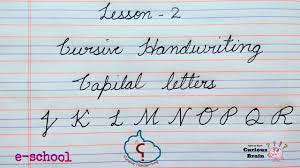 Lesson - 2
Cursive Handwriting
Capital letters
J K L M N O P Q R
e-school
Curious
Brain